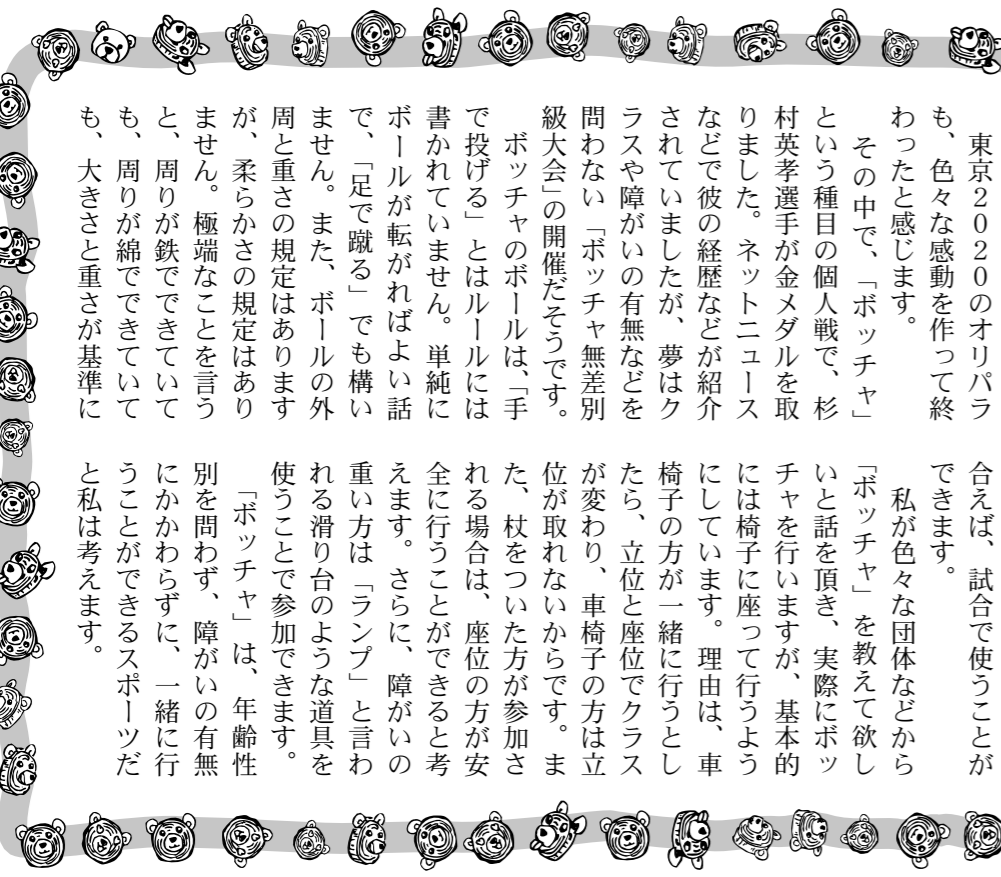 東京2020のオリパラ
も、色々な感動を作って終
わったと感じます。
その中で、「ボッチャ」
という種目の個人戦で、杉
村英孝選手が金メダルを取
りました。ネットニュース
などで彼の経歴などが紹介
されていましたが、夢はク
ラスや障がいの有無などを
問わない「ボッチャ無差別
級大会」の開催だそうです。
ボッチャのボールは、「手
で投げる」とはルールには
書かれていません。単純に
ボールが転がればよい話
で、「足で蹴る」でも構い
ません。また、ボールの外
周と重さの規定はあります
が、柔らかさの規定はあり
ません。極端なことを言う
と、周りが鉄でできていて
も、周りが綿でできていて
も、大きさと重さが基準に
合えば、試合で使うことが
できます。
私が色々な団体などから
「ボッチャ」を教えて欲し
いと話を頂き、実際にボッ
チャを行いますが、基本的
には椅子に座って行うよう
にしています。理由は、車
椅子の方が一緒に行うとし
たら、立位と座位でクラス
が変わり、車椅子の方は立
位が取れないからです。ま
た、杖をついた方が参加さ
れる場合は、座位の方が安
全に行うことができると考
えます。さらに、障がいの
重い方は「ランプ」と言わ
れる滑り台のような道具を
使うことで参加できます。
「ボッチャ」は、年齢性
別を問わず、障がいの有無
にかかわらずに、一緒に行
うことができるスポーツだ
と私は考えます。